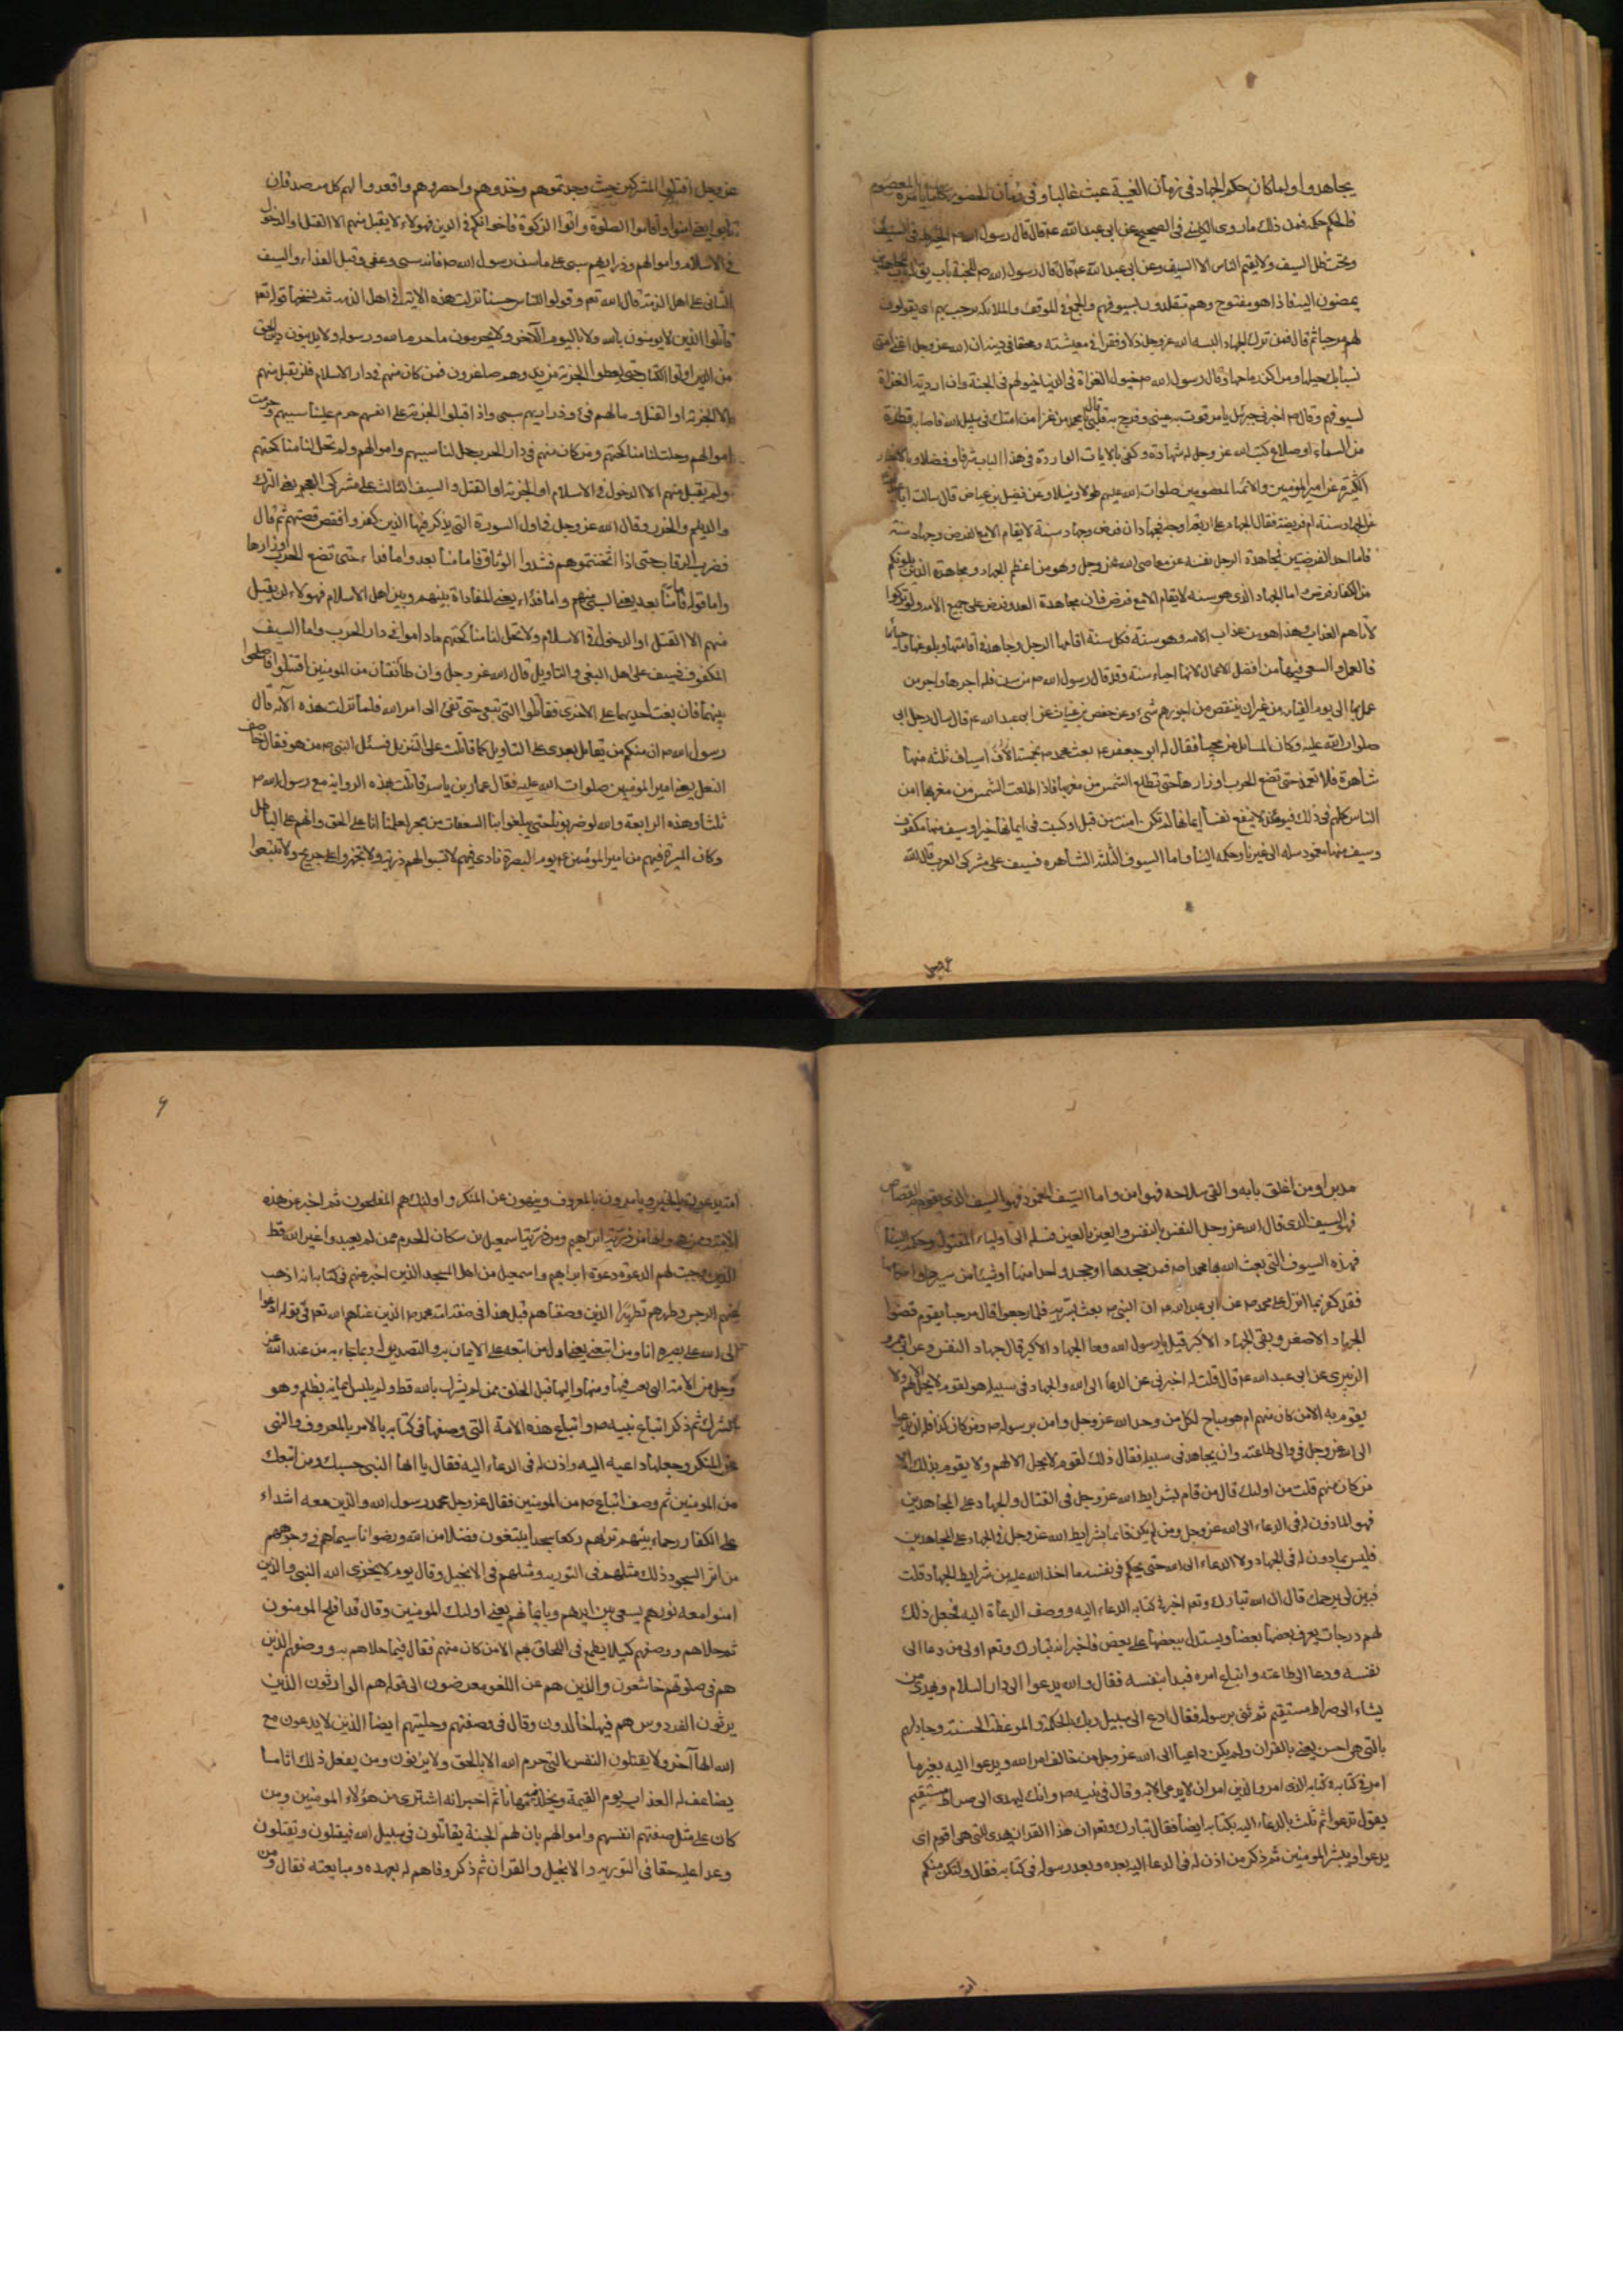 يجاهدوا ولما كان حكم الجهاد فى زمان الغيبة عبث غالبا وفى زمان الحضور كلما يأمره المعصوم
فالحكم حكمه فمن ذلك ما روى الكلينى فى الصحيح عن ابى عبد الله ع قال قال رسول الله ص الخير كله فى السيف
وتحت ظل السيف ولا يقيم الناس الا السيف وعن ابى عبد الله ع قال قال رسول الله ص للجنة باب يقال له باب المجاهدين
يمضون اليه فاذا هو مفتوح وهم متقلدون بسيوفهم والجمع فى الموقف والملائكة ترحب بهم
ثم قال فمن ترك الجهاد البسه الله عز وجل ذلا وفقرا فى معيشته ومحقا فى دينه ان الله عز وجل اغنى امتى
بسنابك خيلها ومراكز رماحها وقال رسول الله ص خيول الغزاة فى الدنيا خيولهم فى الجنة وان اردية الغزاة
لسيوفهم وقال ص اخبرنى جبرئيل بامر قرت به عينى وفرح به قلبى قال يا محمد من غزا من امتك فى سبيل الله فاصابه قطرة
من السماء او صداع كتب الله عز وجل له شهادة وكفى بالايات الواردة فى هذا الباب شرفا وفضلا وبالاخبار
الكثيرة عن امير المومنين والائمة المعصومين صلوات الله عليهم وعن فضيل بن عياض قال سالت ابا عبد الله
عن الجهاد سنة ام فريضة فقال الجهاد على اربعة اوجه فجهادان فرض وجهاد سنة لا يقام الا مع الفرض وجهاد سنة
فاما احد الفرضين فمجاهدة الرجل نفسه عن معاصى الله عز وجل وهو من اعظم الجهاد ومجاهدة الذين يلونكم
من الكفار فرض واما الجهاد الذى هو سنة لا يقام الا مع فرض فان مجاهدة العدو فرض على جميع الامة ولو تركوا
لاتاهم العذاب وهذا هو من عذاب الامة وهو سنة فكل سنة اقامها الرجل وجاهد فى اقامتها وبلوغها واحيائها
فالعمل والسعى فيها من افضل الاعمال لانها احياء سنة وقد قال رسول الله ص من سن فله اجرها واجر من
عمل بها الى يوم القيمة من غير ان ينقص من اجورهم شىء وعن حفص بن غياث عن ابى عبد الله ع قال سال رجل ابى
صلوات الله عليه وكان السائل من محبينا فقال له ابو جعفر ع بعث محمد ص بخمسة اسياف ثلثة منها
شاهرة فلا تغمد حتى تضع الحرب اوزارها حتى تطلع الشمس من مغربها فاذا طلعت الشمس من مغربها امن
الناس كلهم فى ذلك فيومئذ لا ينفع نفسا ايمانها لم تكن امنت من قبل او كسبت فى ايمانها خيرا وسيف منها مكفوف
وسيف منها مغمود سله الى غيرنا وحكمه الينا واما السيوف الثلثة الشاهرة فسيف على مشركى العرب قال الله
عز وجل اقتلوا المشركين حيث وجدتموهم وخذوهم واحصروهم واقعدوا لهم كل مرصد فان
تابوا يعنى امنوا واقاموا الصلوة واتوا الزكوة فاخوانكم فى الدين فهولاء لا يقبل منهم الا القتل او الدخول
فى الاسلام واموالهم وذراريهم سبى على ما سن رسول الله ص فانه سبى وعفى وقبل الفداء والسيف
الثانى على اهل الذمة قال الله تعم وقولوا للناس حسنا نزلت هذه الاية فى اهل الذمة ثم نسخها قوله تعم
قاتلوا الذين لا يومنون بالله ولا باليوم الاخر ولا يحرمون ما حرم الله ورسوله ولا يدينون دين الحق
من الذين اوتوا الكتاب حتى يعطوا الجزية عن يد وهم صاغرون فمن كان منهم فى دار الاسلام فلن يقبل منهم
الا الجزية او القتل ومالهم فىء وذراريهم سبى واذا قبلوا الجزية على انفسهم حرم علينا سبيهم وحرمت
اموالهم وحلت لنا مناكحتهم ومن كان منهم فى دار الحرب حل لنا سبيهم واموالهم ولم تحل لنا مناكحتهم
ولم يقبل منهم الا الدخول فى الاسلام او الجزية او القتل والسيف الثالث على مشركى العجم يعنى الترك
والديلم والخزر وقال الله عز وجل فى اول السورة التى يذكر فيها الذين كفروا فقص قصتهم ثم قال
فضرب الرقاب حتى اذا اثخنتموهم فشدوا الوثاق فاما منا بعد واما فداء حتى تضع الحرب اوزارها
واما قوله فاما منا بعد يعنى السبى منهم واما فداء يعنى المفاداة بينهم وبين اهل الاسلام فهولاء لن يقبل
منهم الا القتل او الدخول فى الاسلام ولا تحل لنا مناكحتهم ما داموا فى دار الحرب واما السيف
المكفوف فسيف على اهل البغى والتاويل قال الله عز وجل وان طائفتان من المومنين اقتتلوا فاصلحوا
بينهما فان بغت احديهما على الاخرى فقاتلوا التى تبغى حتى تفىء الى امر الله فلما نزلت هذه الاية قال
رسول الله ص ان منكم من يقاتل بعدى على التاويل كما قاتلت على التنزيل فسئل النبى ص من هو فقال خاصف
النعل يعنى امير المومنين صلوات الله عليه فقال عمار بن ياسر قاتلت بهذه الراية مع رسول الله ص
ثلثا وهذه الرابعة والله لو ضربونا حتى يبلغوا بنا السعفات من هجر لعلمنا انا على الحق وانهم على الباطل
وكان السيرة فيهم من امير المومنين ع يوم البصرة نادى فيهم لا تسبوا لهم ذرية ولا تجهزوا على جريح ولا تتبعوا
مدبرا ومن اغلق بابه والقى سلاحه فهو امن واما السيف المغمود فهو السيف الذى يقوم به القصاص
فهو السيف الذى قال الله عز وجل النفس بالنفس والعين بالعين فسله الى اولياء المقتول وحكمه الينا
فهذه السيوف التى بعث الله بها محمدا ص فمن جحدها او جحد واحدا منها او شيئا من سيرها واحكامها
فقد كفر بما انزل على محمد ص عن ابى عبد الله ع ان النبى ص بعث بسرية فلما رجعوا قال مرحبا بقوم قضوا
الجهاد الاصغر وبقى الجهاد الاكبر قيل يا رسول الله وما الجهاد الاكبر قال جهاد النفس وعن ابى عمرو
الزبيرى عن ابى عبد الله ع قال قلت له اخبرنى عن الدعاء الى الله والجهاد فى سبيله اهو لقوم لا يحل الا لهم ولا
يقوم به الا من كان منهم ام هو مباح لكل من وحد الله عز وجل وامن برسوله ص ومن كان كذا فله ان يدعوا
الى الله عز وجل والى طاعته وان يجاهد فى سبيله فقال ذلك لقوم لا يحل الا لهم ولا يقوم بذلك الا
من كان منهم قلت من اولئك قال من قام بشرايط الله عز وجل فى القتال والجهاد على المجاهدين
فهو الماذون له فى الدعاء الى الله عز وجل ومن لم يكن قائما بشرايط الله عز وجل فى الجهاد على المجاهدين
فليس بماذون له فى الجهاد ولا الدعاء الى الله حتى يحكم فى نفسه ما اخذ الله عليه من شرايط الجهاد قلت
فبين لى يرحمك الله قال ان الله تبارك وتعم اخبر فى كتابه الدعاء اليه ووصف الدعاة اليه فجعل ذلك
لهم درجات يعرف بعضها بعضا ويستدل ببعضها على بعض فاخبر انه تبارك وتعم اول من دعا الى
نفسه ودعا الى طاعته واتباع امره فبدا بنفسه فقال والله يدعوا الى دار السلام ويهدى من
يشاء الى صراط مستقيم ثم ثنى برسوله فقال ادع الى سبيل ربك بالحكمة والموعظة الحسنة وجادلهم
بالتى هى احسن يعنى بالقران ولم يكن داعيا الى الله عز وجل من خالف امر الله ويدعوا اليه بغير ما
امر فى كتابه الذى امر ان لا يدعى الا به وقال فى نبيه ص وانك لتهدى الى صراط مستقيم
يقول تدعوا ثم ثلث بالدعاء اليه بكتابه ايضا فقال تبارك وتعم ان هذا القران يهدى للتى هى اقوم اى
يدعوا ويبشر المومنين ثم ذكر من اذن له فى الدعاء اليه بعده وبعد رسوله فى كتابه فقال ولتكن منكم
٩
امة يدعون الى الخير ويامرون بالمعروف وينهون عن المنكر واولئك هم المفلحون ثم اخبر عن هذه
الامة وممن هى وانها من ذرية ابراهيم ومن ذرية اسمعيل من سكان الحرم ممن لم يعبدوا غير الله قط
الذين وجبت لهم الدعوة دعوة ابراهيم واسمعيل من اهل المسجد الذين اخبر عنهم فى كتابه انه اذهب
عنهم الرجس وطهرهم تطهيرا الذين وصفناهم قبل هذا فى صفة امة محمد ص الذين عناهم الله تعم فى قوله ادعوا
الى الله على بصيرة انا ومن اتبعنى يعنى اول من اتبعه على الايمان به والتصديق له وبما جاء به من عند الله عز
وجل من الامة التى بعث فيها ومنها واليها قبل الخلق ممن لم يشرك بالله قط ولم يلبس ايمانه بظلم وهو
الشرك ثم ذكر اتباع نبيه ص واتباع هذه الامة التى وصفها فى كتابه بالامر بالمعروف والنهى
عن المنكر وجعلها داعية اليه واذن له فى الدعاء اليه فقال يا ايها النبى حسبك ومن اتبعك
من المومنين ثم وصف اتباع ص من المومنين فقال عز وجل محمد رسول الله والذين معه اشداء
على الكفار رحماء بينهم تراهم ركعا سجدا يبتغون فضلا من الله ورضوانا سيماهم فى وجوههم
من اثر السجود ذلك مثلهم فى التورية ومثلهم فى الانجيل وقال يوم لا يخزى الله النبى والذين
امنوا معه نورهم يسعى بين ايديهم وبايمانهم يعنى اولئك المومنين وقال قد افلح المومنون
ثم حلاهم ووصفهم كيلا يطمع فى اللحاق بهم الا من كان منهم فقال فيما حلاهم به ووصفهم الذين
هم فى صلوتهم خاشعون والذين هم عن اللغو معرضون الى قوله هم الوارثون الذين
يرثون الفردوس هم فيها خالدون وقال فى وصفهم وحليتهم ايضا الذين لا يدعون مع
الله الها آخر ولا يقتلون النفس التى حرم الله الا بالحق ولا يزنون ومن يفعل ذلك يلق اثاما
يضاعف له العذاب يوم القيمة ويخلد فيه مهانا ثم اخبر انه اشترى من هؤلاء المومنين ومن
كان على مثل صفتهم انفسهم واموالهم بان لهم الجنة يقاتلون فى سبيل الله فيقتلون ويقتلون
وعدا عليه حقا فى التورية والانجيل والقران ثم ذكر وفاهم له بعهده ومبايعته فقال ومن